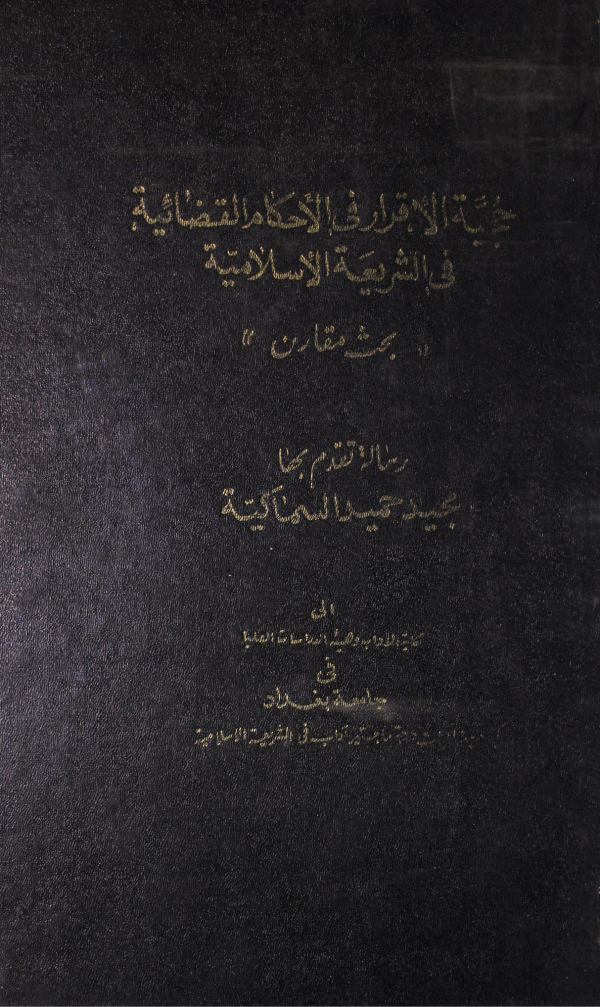 حُجيَّة الإقرار في الأحكام القضائية
في الشريعة الإسلاميّة
« بحث مقارن »
رسالة تقدم بها
مجيد حميد السماكيّة
الى
كلية الآداب وهيئة الدراسات العليا
في
جامعة بغداد
درجة ماجستير آداب في الشريعة الاسلامية